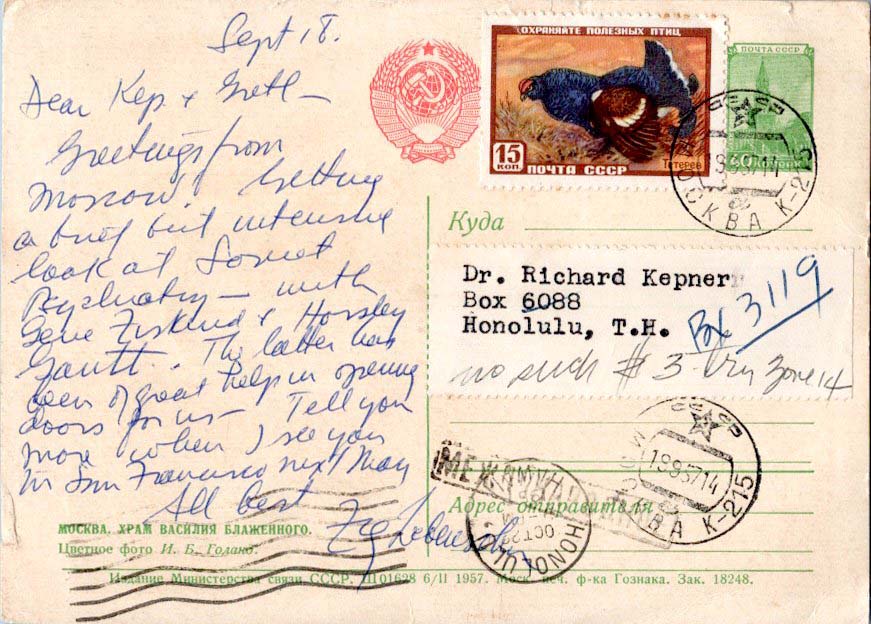 Sept 18.
Dear Kep & Gretl -
Greetings from
Moscow! Getting
a brief but intensive
look at Soviet
Psychiatry - with
Gene Ziskind & Horsley
Gantt. The latter has
been of great help in opening
doors for us - Tell you
more when I see you
in San Francisco next May
All best
Zig
МОСКВА. ХРАМ ВАСИЛИЯ БЛАЖЕННОГО.
Цветное фото И. Б. Голанд.
Издание Министерства связи СССР. Ш01628 6/II 1957. Моск. печ. ф-ка Гознака. Зак. 18248.
ОХРАНЯЙТЕ ПОЛЕЗНЫХ ПТИЦ
15 КОП.
Тетерев
ПОЧТА СССР
ПОЧТА СССР
40 КОПЕЕК
МОСКВА К-215
СССР
Куда
Dr. Richard Kepner
Box 6088
Honolulu, T.H.
Box 3119
no such # 3 - try Zone 14
СССР
19957 14
МОСКВА К-215
Адрес отправителя
МЕЖДУНАРОДНАЯ
HONOLULU
OCT 2